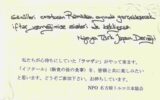 Ramazan ayında
iftar yemeğimize sizleri de bekleriz
Nagoya Türk Japon Derneği
私たちが心待ちにしていた「ラマザン」がやって来ます。
「イフタール」(断食の後の食事)を、皆様と共に楽しみたい
と思います。どうぞご参加下さい。お待ちしています。
NPO 名古屋トルコ日本協会